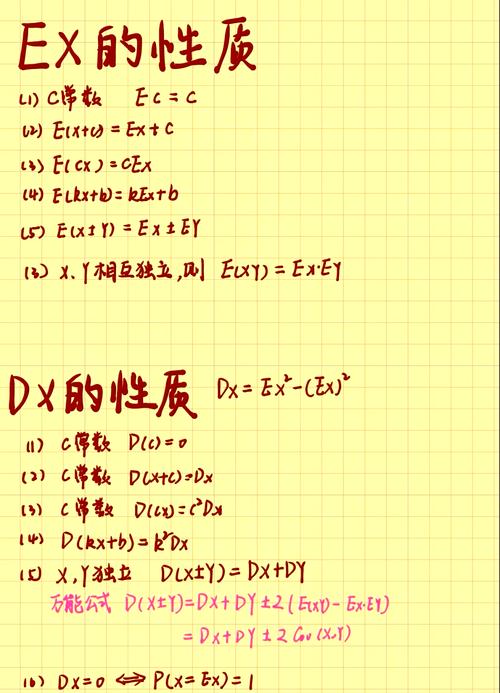 EX的性质
(1) C常数 EC = C
(2) E(X+C) = EX + C
(3) E(CX) = CEX
(4) E(kX+b) = kEX+b
(5) E(X±Y) = EX ± EY
(3) X、Y相互独立,则 E(XY) = EX·EY
DX的性质 DX = EX²-(EX)²
(1) C常数 D(C)=0
(2) C常数 D(X+C)=DX
(3) C常数 D(CX)=C²DX
(4) D(kX+b)=k²DX
(5) X,Y独立 D(X±Y) = DX+DY
万能公式 D(X±Y)=DX+DY±2(E(XY)-EX·EY)
= DX+DY±2Cov(X,Y)
(6) DX=0 ⟺ P(X=EX)=1